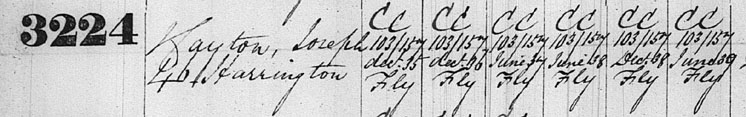 CC CC CC CC CC CC
3224 Kayton, Joseph 103/157 103/157 103/157 103/157 103/157 103/157
% Harrington dec. 35 dec. 36 June 37 June 38 Dec. 38 June 39
Fly Fly Fly Fly Fly Fly